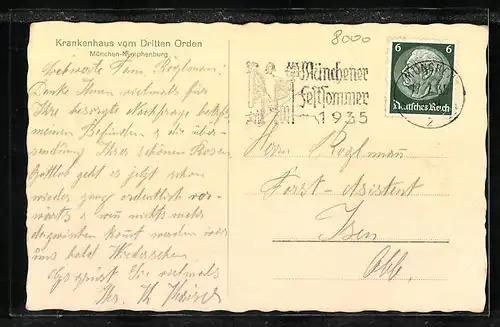 Krankenhaus vom Dritten Orden
München-Nymphenburg
8000
Geehrteste Fam. Röglmann!
Danke Ihnen vielmals für
Ihre besorgte Nachfrage betreffs
meinen Befinden & die über-
sendung Ihrer schönen Rosen.
Gottlob geht es jetzt schon
wieder ganz ordentlich vor-
wärts & wenn nichts mehr
dazwischen kommt werden wir
uns bald Wiedersehen.
Es grüsst Sie vielmals
Ihr
Münchener
Festsommer
1935
6 6
Deutsches Reich
Herrn Röglmann
Forst-Assistent
Isen
Obb.